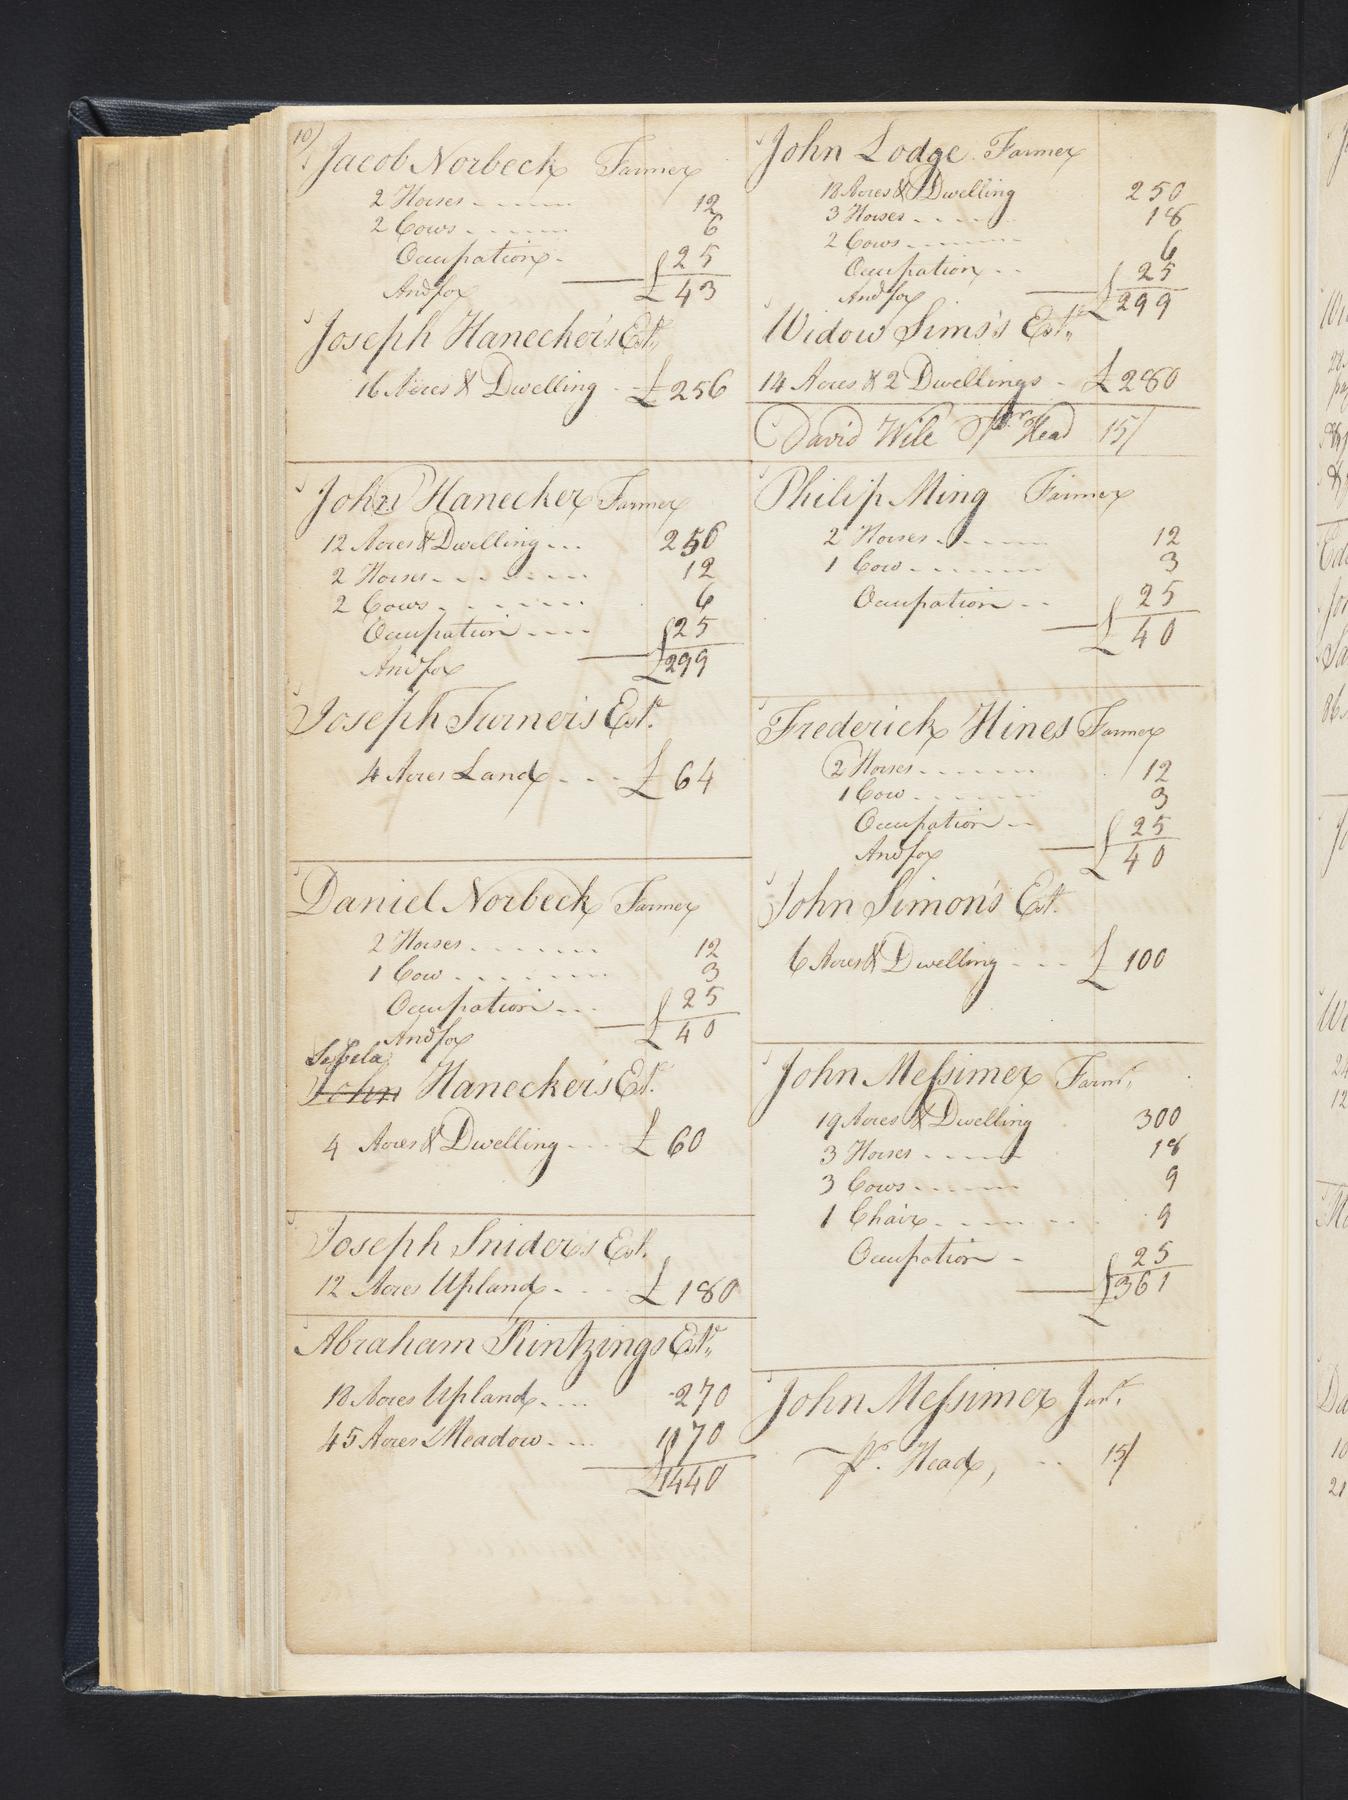 10/
Jacob Norbeck Farmer
2 Horses 12
2 Cows 6
Occupation 25
And for £ 43
Joseph Hanecker's Estr.
16 Acres & Dwelling £ 256
John Hanecker Farmer
12 Acres & Dwelling 256
2 Horses 12
2 Cows 6
Occupation 25
And for £ 299
Joseph Turner's Estr.
4 Acres Land £ 64
Daniel Norbeck Farmer
2 Horses 12
1 Cow 3
Occupation 25
And for £ 40
John Hanecker's Estr.
4 Acres & Dwelling £ 60
Joseph Snider's Est.
12 Acres Upland £ 180
Abraham Kintzings Estr.
18 Acres Upland 270
45 Acres Meadow 1170
£ 1440
John Lodge Farmer
18 Acres & Dwelling 250
3 Horses 18
2 Cows 6
Occupation 25
And for £ 299
Widow Sims's Estr.
14 Acres & 2 Dwellings £ 280
David Wile Pr. Head 15/
Philip Ming Farmer
2 Horses 12
1 Cow 3
Occupation 25
£ 40
Frederick Hines Farmer
2 Horses 12
1 Cow 3
Occupation 25
And for £ 40
John Simon's Est.
6 Acres & Dwelling £ 100
John Messimer Farmr.
19 Acres & Dwelling 300
3 Horses 18
3 Cows 9
1 Chair 9
Occupation 25
£ 361
John Messimer Junr.
Pr. Head, 15/